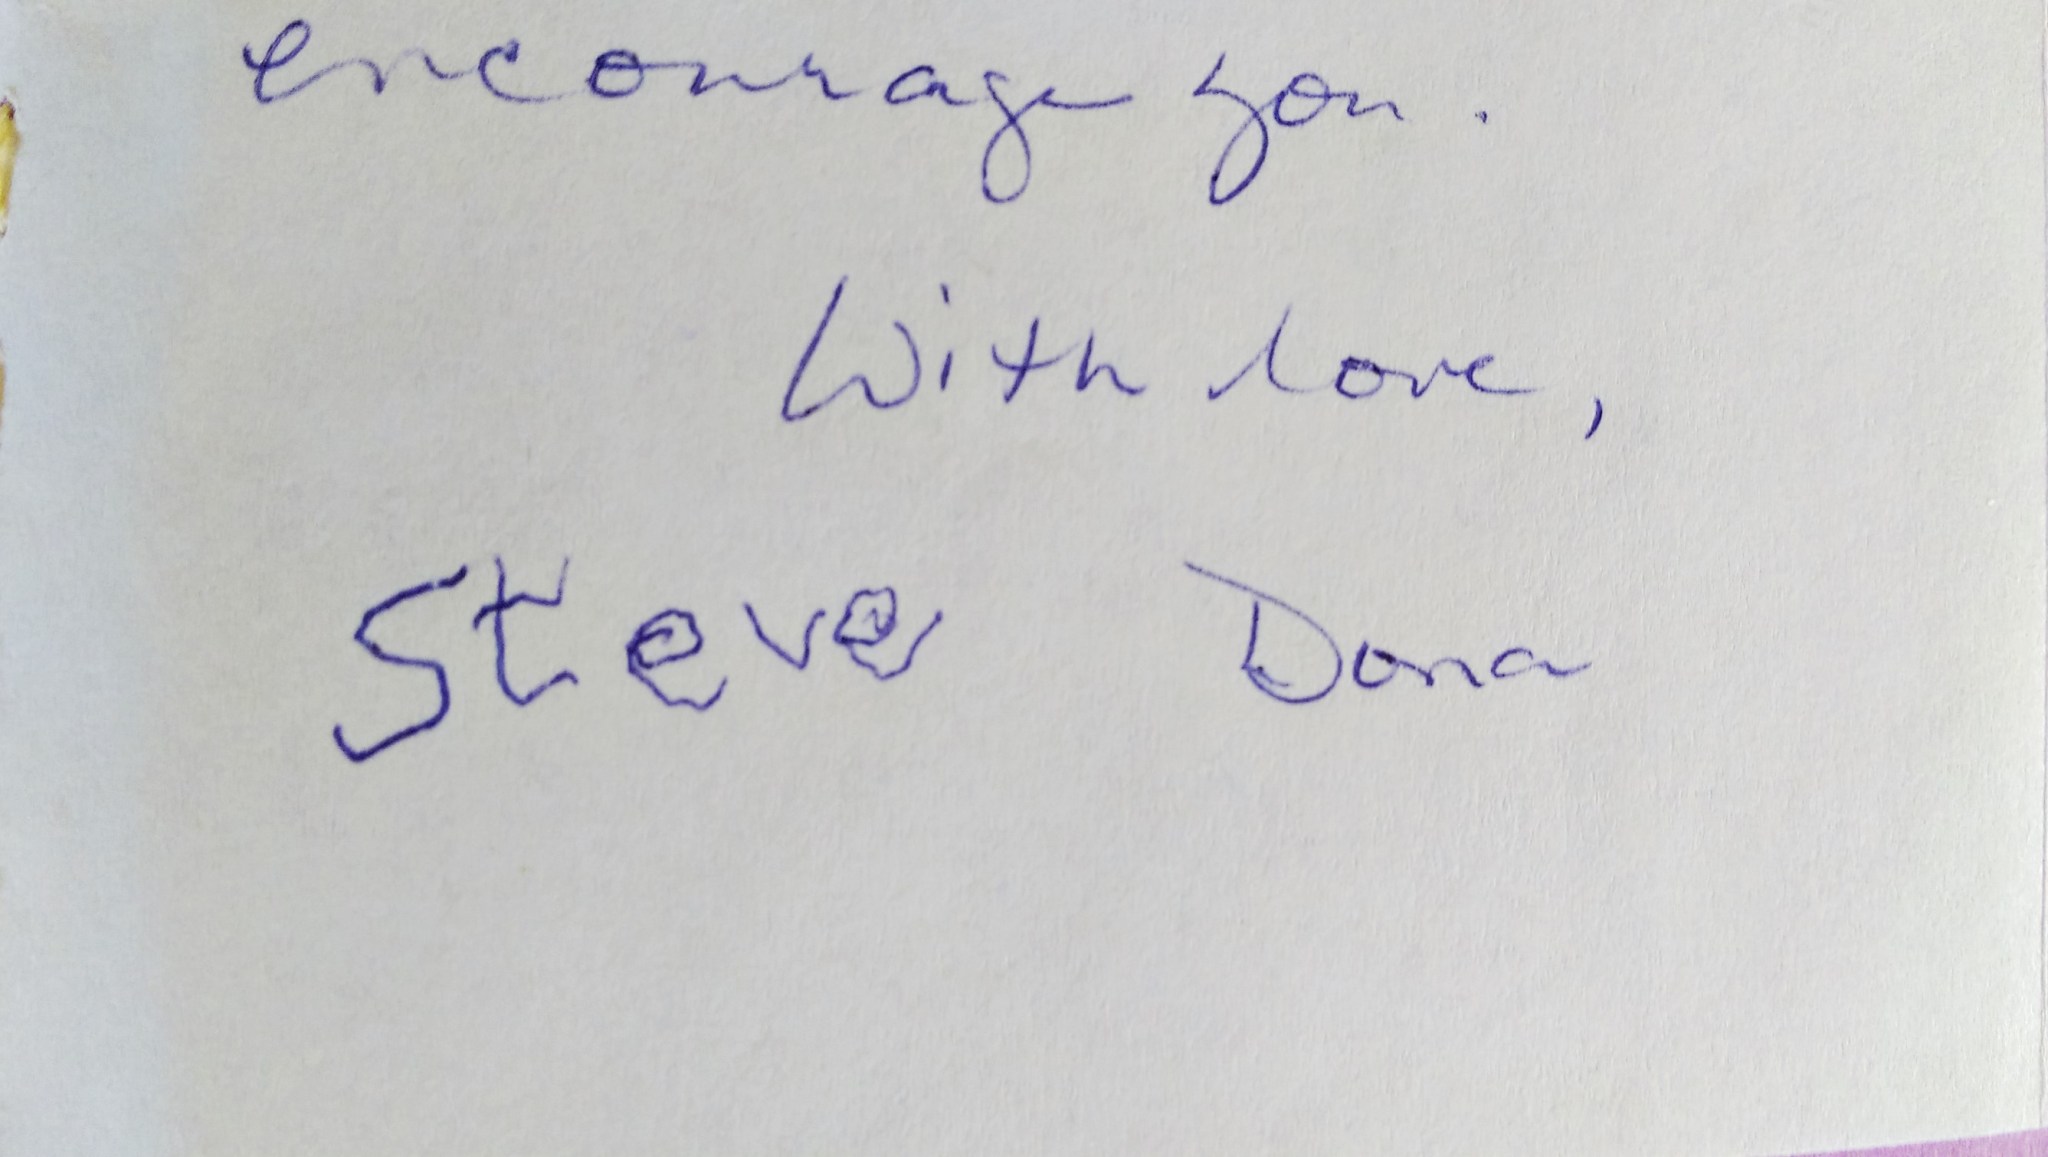 encourage you.
With love,
Steve Dona